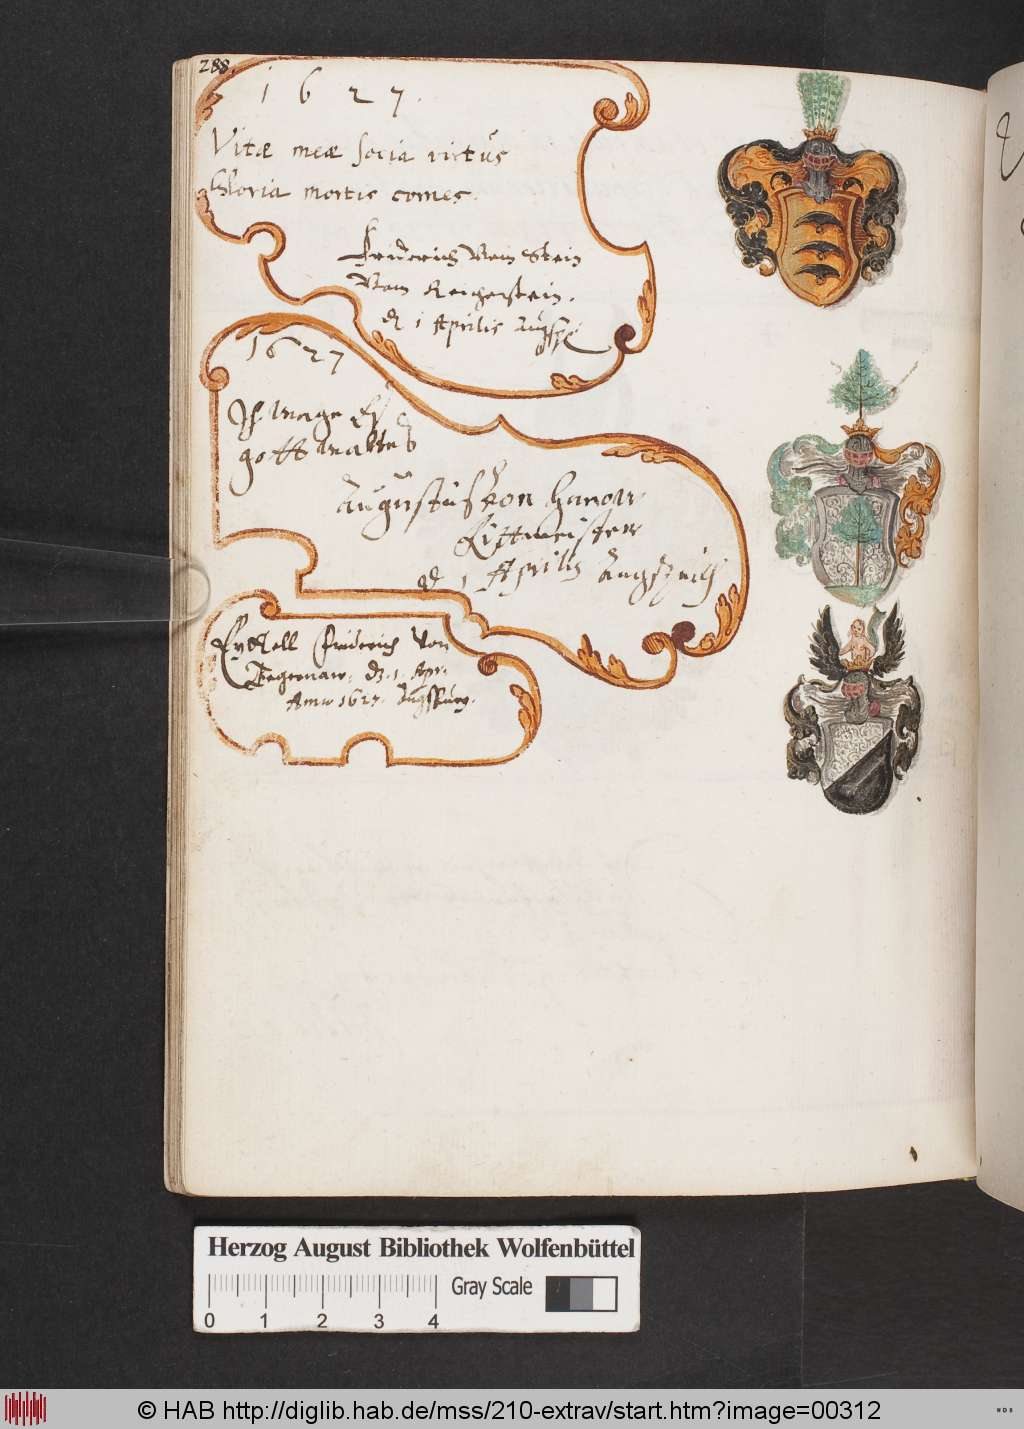 288.
1 6 2 7.
Vitæ meæ socia virtus
Gloria mortis comes.
Friderich Vom Stein
Vom Reigerstein.
d 1 Aprilis Augsp
1627
Ich wage Es
gott waltes
Augustus von Hanow
Rittmeister
d 1 Aprilis Augspurg
Eytell Friderich Von
Tegernaw. d. 1. Apr.
Anno 1627. Augspurg.
Herzog August Bibliothek Wolfenbüttel
Gray Scale
0 1 2 3 4
© HAB http://diglib.hab.de/mss/210-extrav/start.htm?image=00312